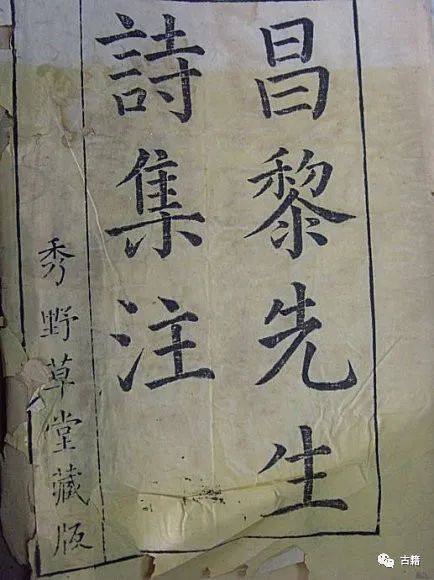 昌黎先生
詩集注
秀野草堂藏版
古籍